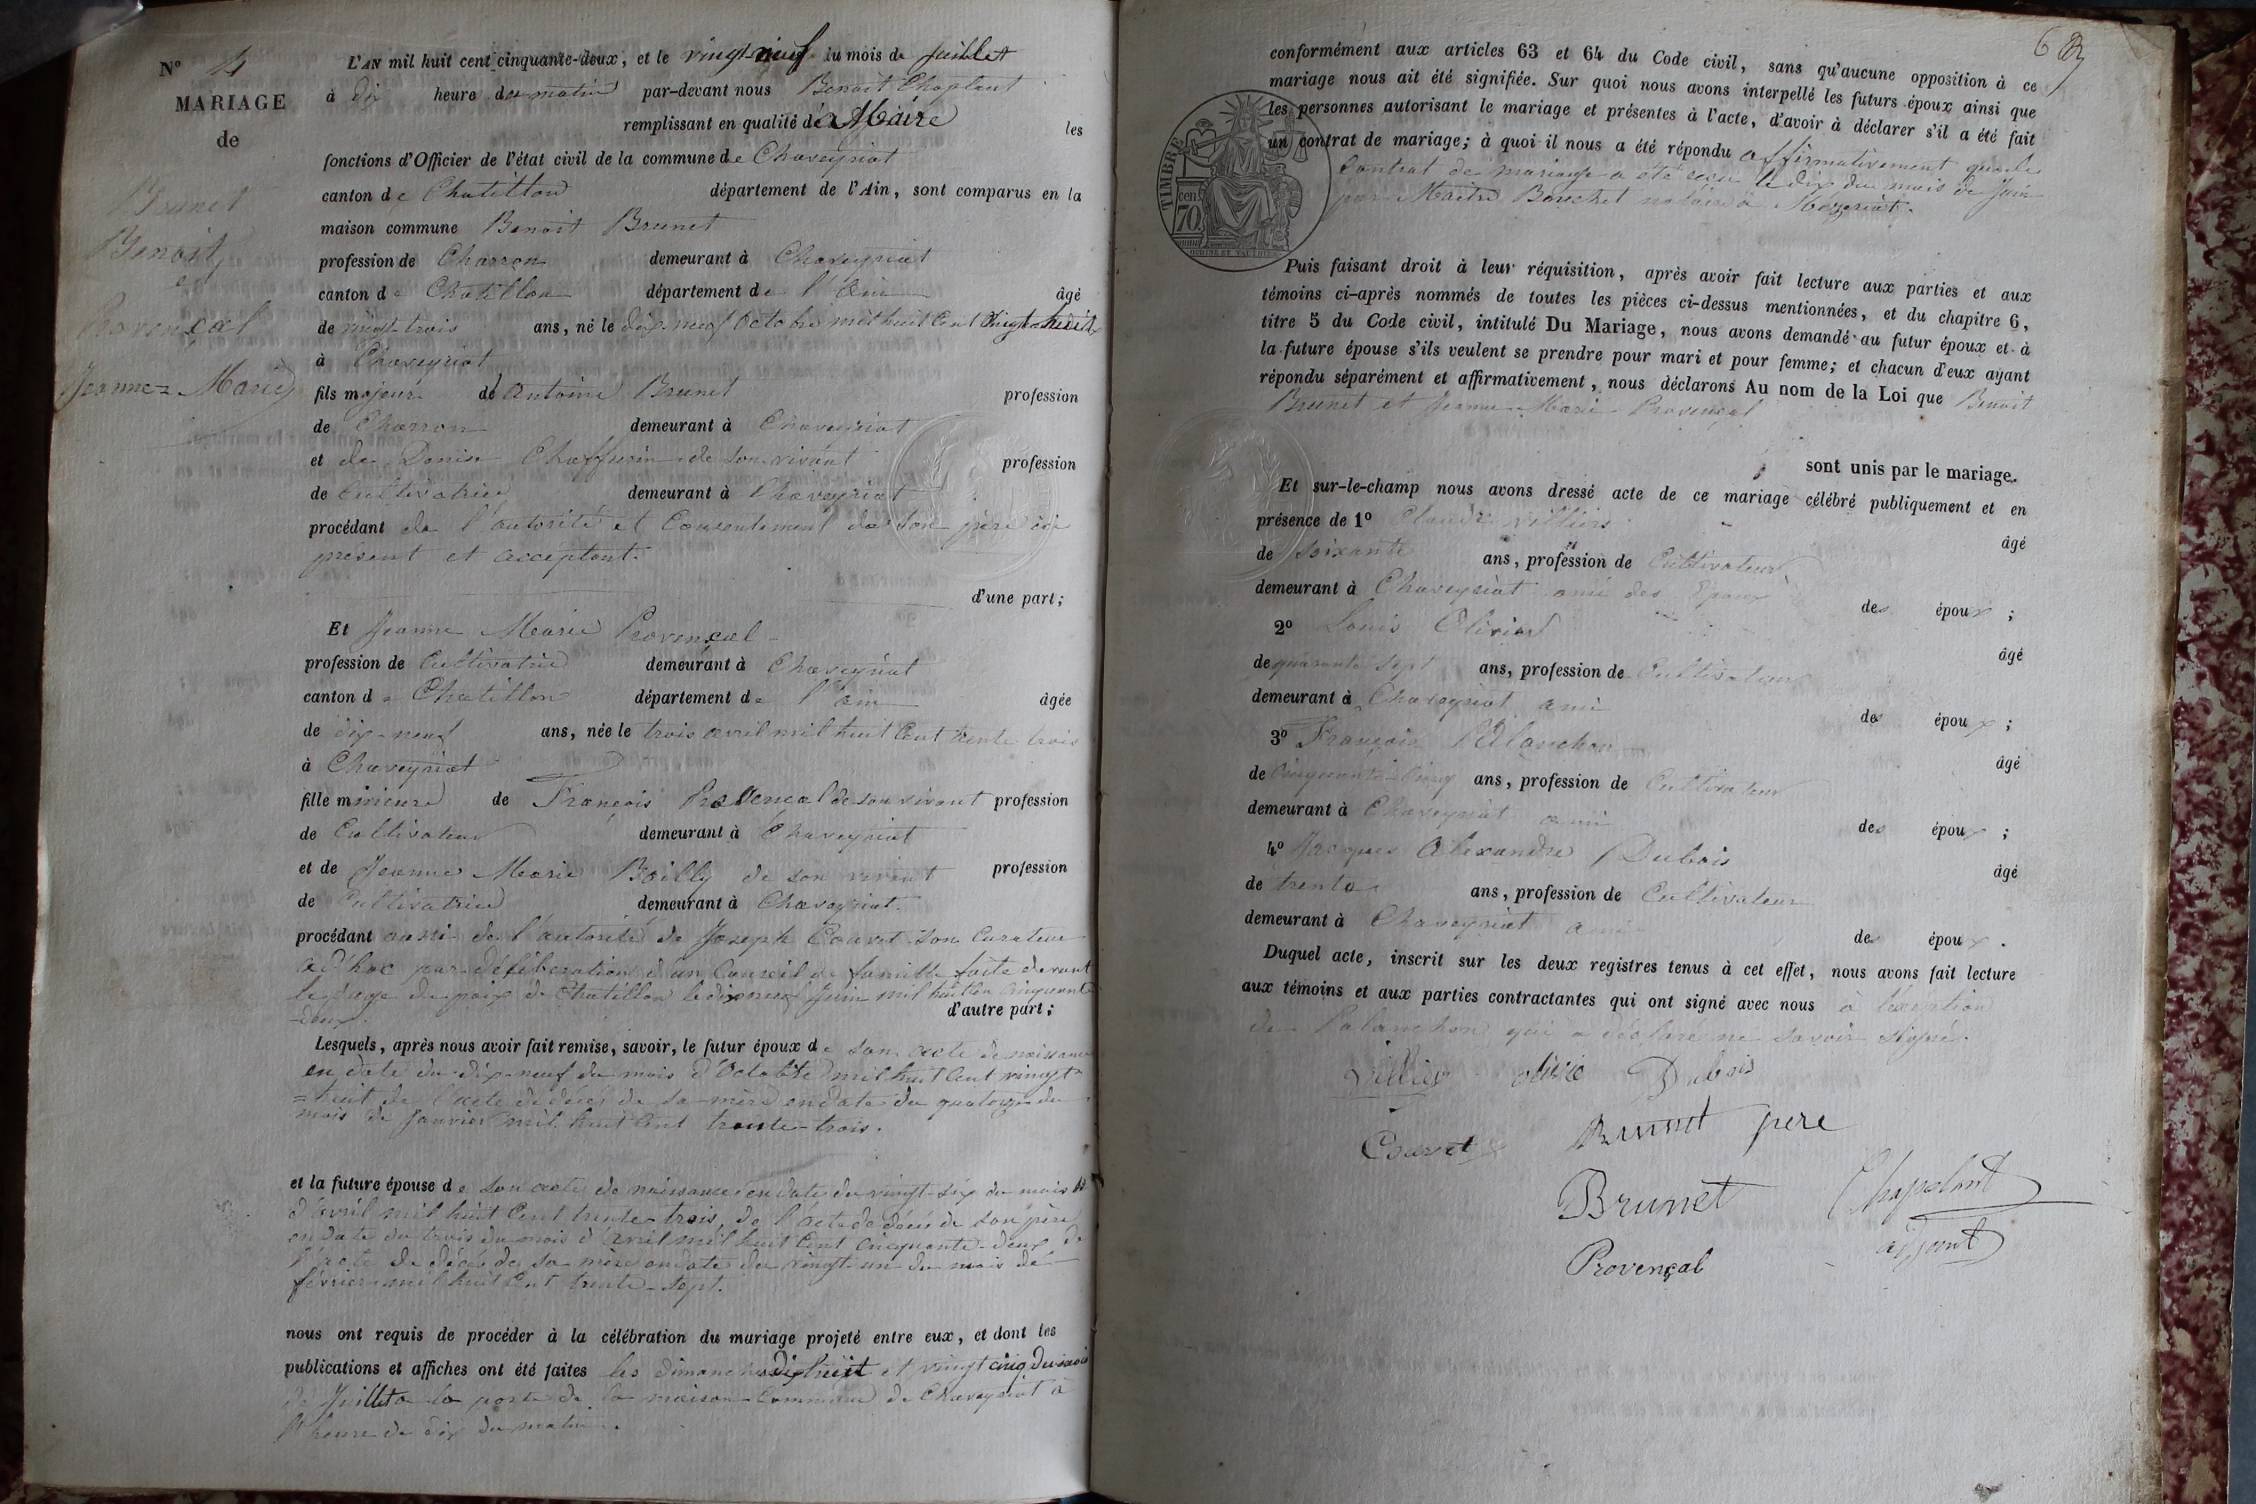 N° 4
MARIAGE
de
Brunet
Benoit
et
Provençal
Jeanne-Marie
L'AN mil huit cent cinquante-deux, et le vingt-neuf du mois de Juillet
à dix heure du matin par-devant nous Benoit Chapelant
remplissant en qualité de Maire les
fonctions d'Officier de l'état civil de la commune de Chaveyriat
canton de Chatillon département de l'Ain, sont comparus en la
maison commune Benoit Brunet
profession de Charron demeurant à Chaveyriat
canton de Chatillon département de l'ain âgé
de vingt-trois ans, né le dix-neuf Octobre mil huit Cent vingt-huit
à Chaveyriat
fils majeur de Antoine Brunet profession
de Charron demeurant à Chaveyriat
et de Denise Chaffurin de son vivant profession
de Cultivatrice demeurant à Chaveyriat
procédant de l'autorité et Consentement de son père ici
présent et acceptant.
d'une part;
Et Jeanne Marie Provençal
profession de Cultivatrice demeurant à Chaveyriat
canton de Chatillon département de l'ain âgée
de dix-neuf ans, née le trois avril mil huit Cent trente trois
à Chaveyriat
fille mineure de François Provençal de son vivant profession
de Cultivateur demeurant à Chaveyriat
et de Jeanne Marie Bailly de son vivant profession
de Cultivatrice demeurant à Chaveyriat.
procédant aussi de l'autorité de Joseph Couvet son Curateur
ad'hoc par délibération d'un Conseil de famille faite devant
le juge de paix de Chatillon le dix neuf Juin mil huit Cen cinquante
-deux. d'autre part;
Lesquels, après nous avoir fait remise, savoir, le futur époux de son acte de naissance
en date du dix-neuf du mois d'Octobre mil huit Cent vingt
=huit de l'acte de décès de sa mère en date du quatorze du
mois de Janvier mil huit Cent trente-trois.
et la future épouse de son acte de naissance en date du vingt-six du mois
d'avril mil huit Cent trente-trois, de l'acte de décès de son père
en date du trois du mois d'avril mil huit Cent cinquante-deux de
l'acte de décès de sa mère en date du vingt-un du mois de
février mil huit Cent trente-sept.
nous ont requis de procéder à la célébration du mariage projeté entre eux, et dont les
publications et affiches ont été faites les dimanches dix huit et vingt cinq du mois
de Juillet à la porte de la maison-Commune de Chaveyriat à
l'heure de dix du matin.
6
conformément aux articles 63 et 64 du Code civil, sans qu'aucune opposition à ce
mariage nous ait été signifiée. Sur quoi nous avons interpellé les futurs époux ainsi que
les personnes autorisant le mariage et présentes à l'acte, d'avoir à déclarer s'il a été fait
un contrat de mariage; à quoi il nous a été répondu affirmativement que le
Contrat de mariage a été reçu le dix du mois de Juin
par Maitre Bouchet notaire à Mézériat.
TIMBRE
70 cen.
Puis faisant droit à leur réquisition, après avoir fait lecture aux parties et aux
témoins ci-après nommés de toutes les pièces ci-dessus mentionnées, et du chapitre 6,
titre 5 du Code civil, intitulé Du Mariage, nous avons demandé au futur époux et à
la future épouse s'ils veulent se prendre pour mari et pour femme; et chacun d'eux ayant
répondu séparément et affirmativement, nous déclarons Au nom de la Loi que Benoit
Brunet et Jeanne Marie Provençal
sont unis par le mariage.
Et sur-le-champ nous avons dressé acte de ce mariage célébré publiquement et en
présence de 1° Claude Villiers âgé
de soixante ans, profession de Cultivateur
demeurant à Chaveyriat ami des Epoux des époux;
2° Louis Olivier âgé
de quarante sept ans, profession de Cultivateur
demeurant à Chaveyriat ami des époux;
3° François Palanchon âgé
de Cinquante-Cinq ans, profession de Cultivateur
demeurant à Chaveyriat ami des époux;
4° Jacques Alexandre Dubois âgé
de trente ans, profession de Cultivateur
demeurant à Chaveyriat ami des époux.
Duquel acte, inscrit sur les deux registres tenus à cet effet, nous avons fait lecture
aux témoins et aux parties contractantes qui ont signé avec nous à l'exception
de Palanchon qui a déclaré ne savoir signé.
Villier olivié Dubois
Couvet Brunet père
Brunet Chapelant
adjoint
Provençal